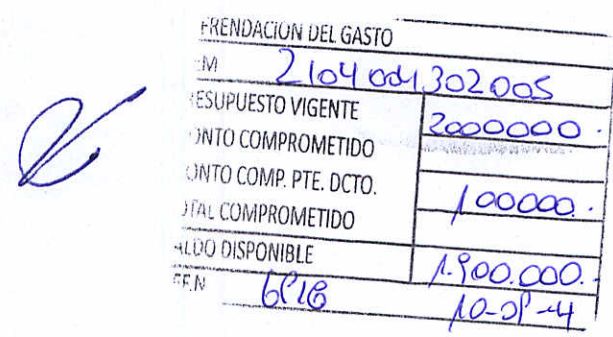 FRENDACION DEL GASTO
EM 21040041302005
ESUPUESTO VIGENTE 2000000.
ONTO COMPROMETIDO
ONTO COMP. PTE. DCTO. 100000.
OTAL COMPROMETIDO
ALDO DISPONIBLE 1.900.000.
EF.N